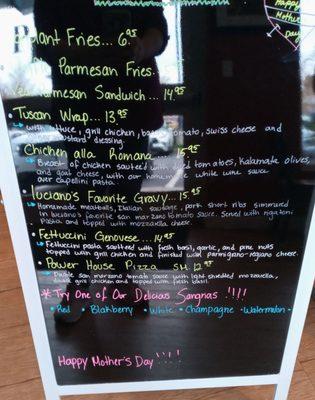 Happy
Mother's
Day
Fries... 6.95
Parmesan Fries...
Parmesan Sandwich... 14.95
• Tuscan Wrap... 13.95
with lettuce, grill chicken, tomato, swiss cheese and
dressing.
• Chicken alla Romana... 15.95
Breast of chicken sauteed with diced tomatoes, kalamate olives,
and goat cheese, with our homemade white wine sauce
over capellini pasta.
• Luciano's Favorite Gravy... 15.95
Homemade meatballs, Italian sausage, pork short ribs simmered
in luciano's favorite san marzano tomato sauce. Served with rigatoni
pasta and topped with mozzarella cheese.
• Fettuccini Genovese... 14.95
Fettuccini pasta sauteed with fresh basil, garlic, and pine nuts
topped with grill chicken and finished with parmigiano-regano cheese.
• Power House Pizza SM. 12.95
san marzano tomato sauce with light shredded mozzarella,
grill chicken and topped with fresh basil.
* Try One of Our Delicious Sangrias !!!!
• Red • Blackberry • White • Champagne • Watermelon
Happy Mother's Day !!!!